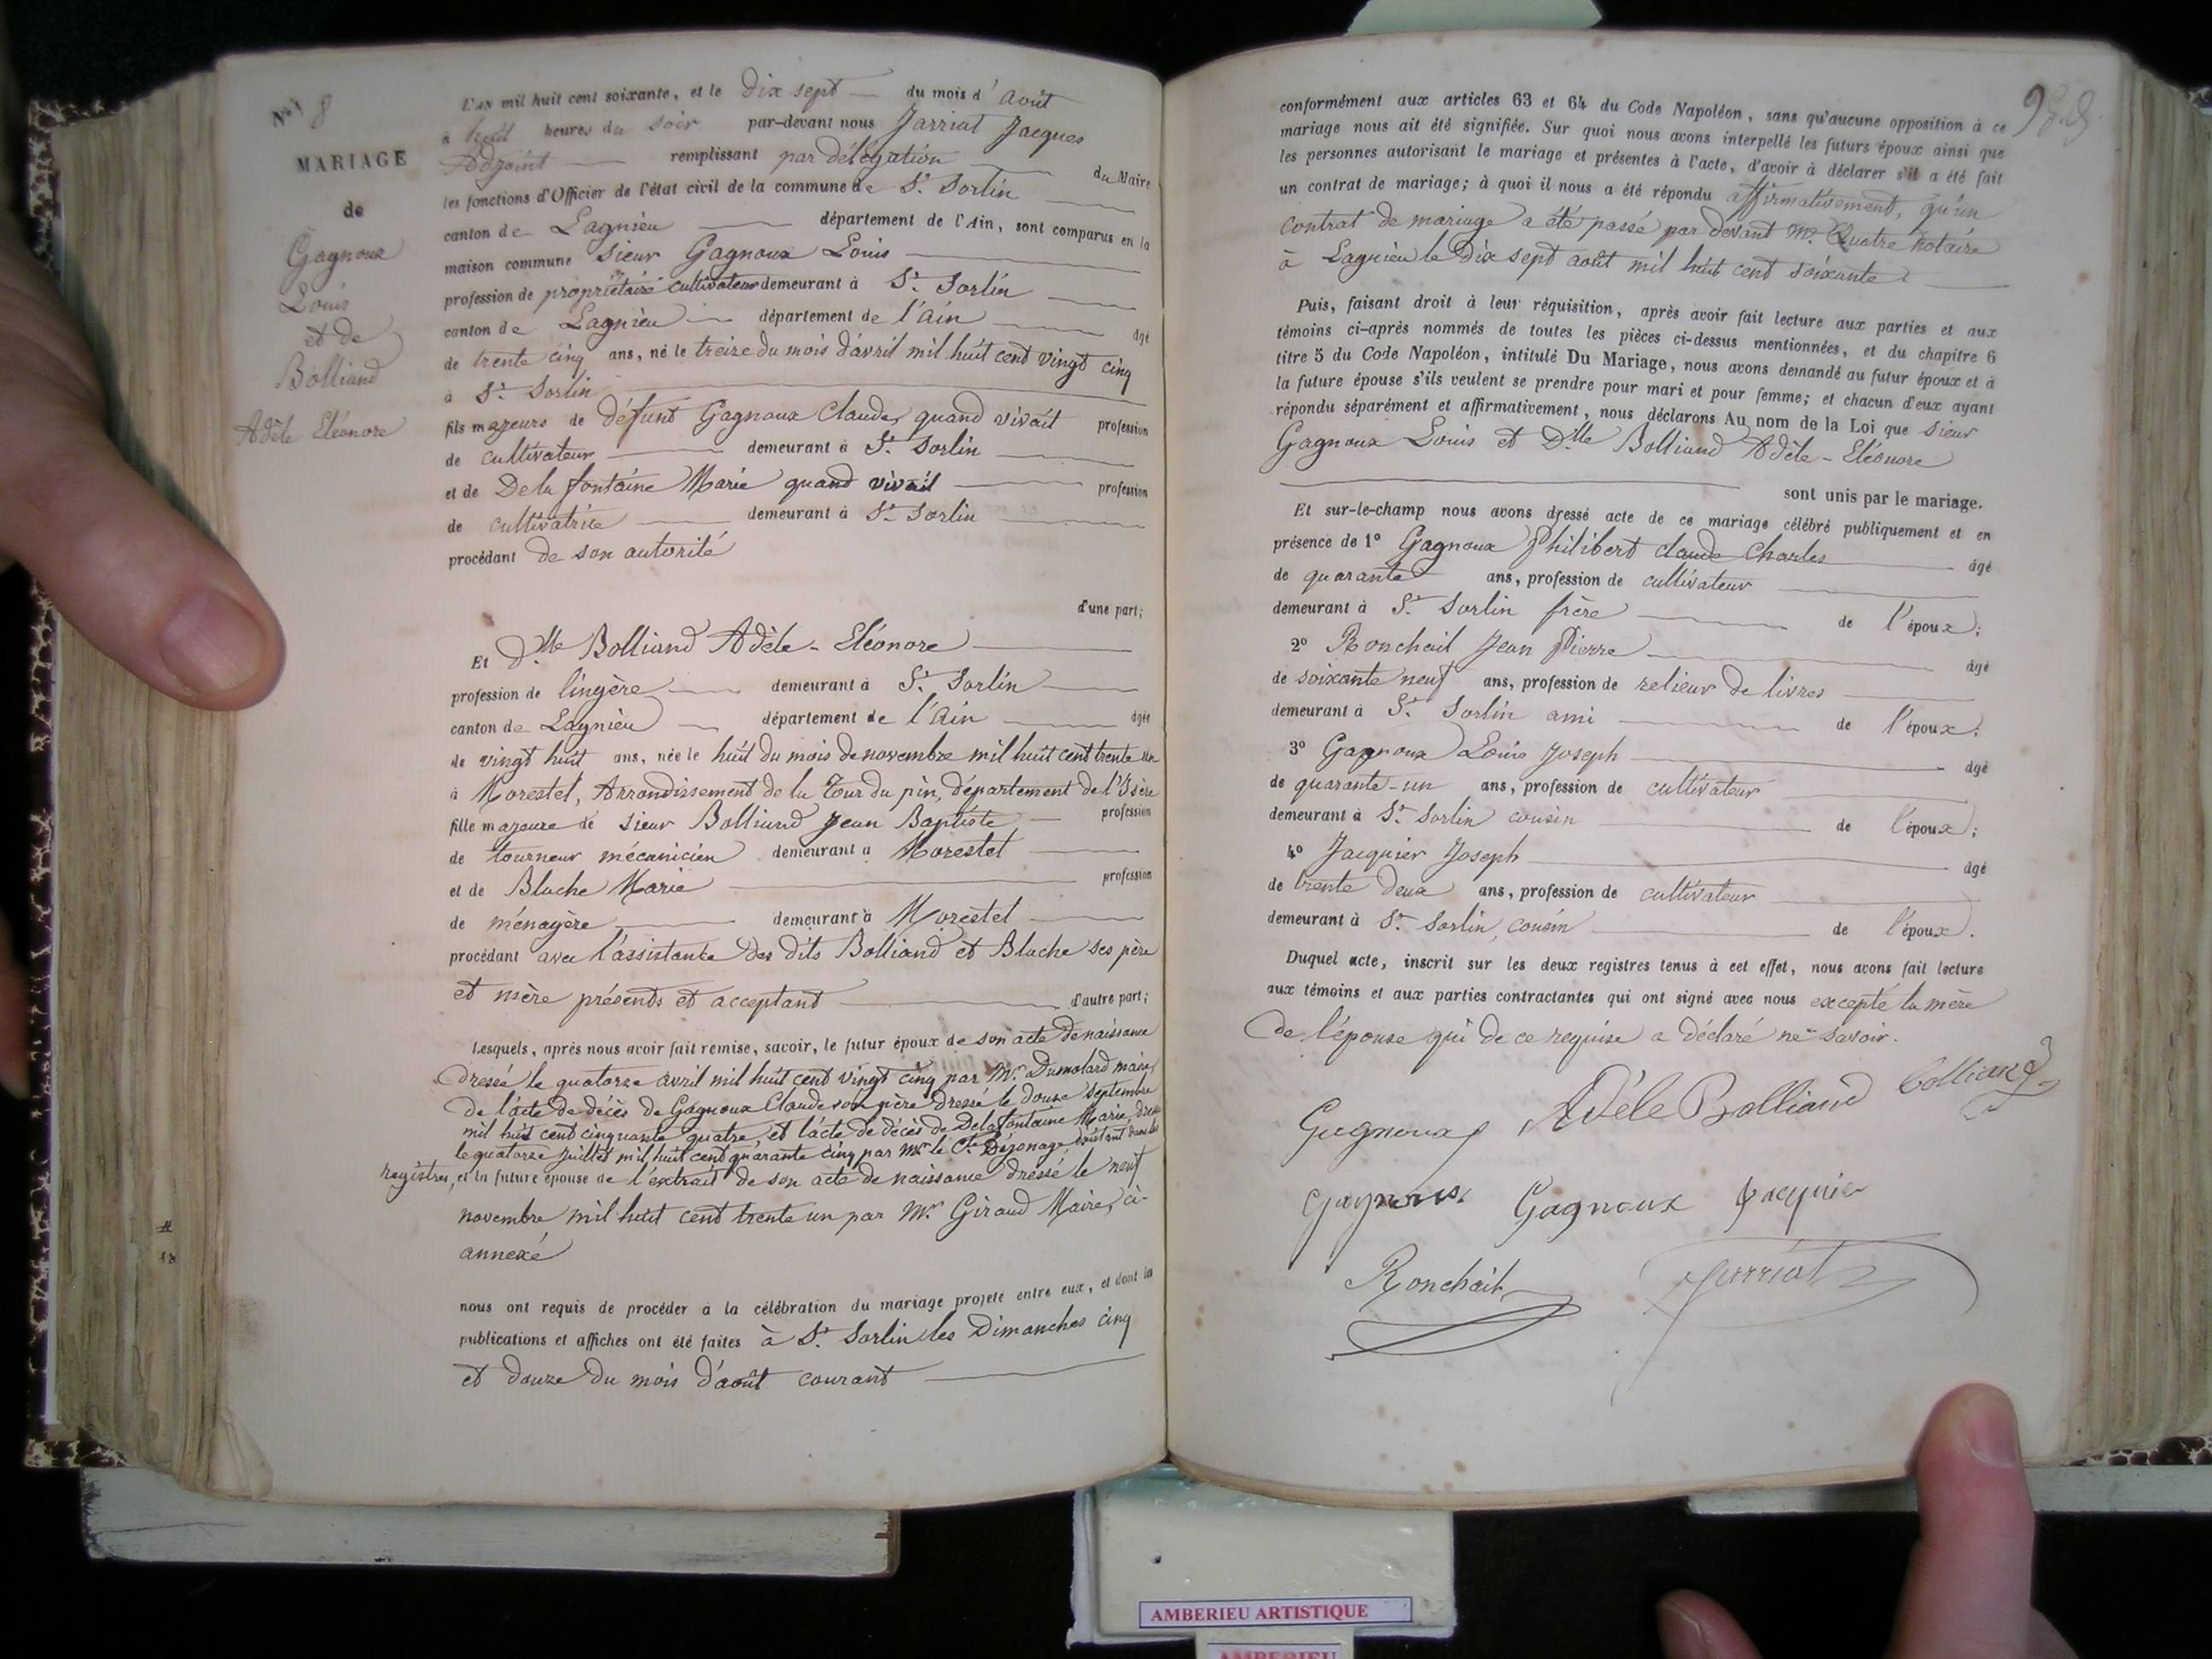 N° 8
MARIAGE
de
Gagnoux
Louis
et de
Bolliand
Adèle Eléonore
L'an mil huit cent soixante, et le dix sept du mois d'août
à huit heures du soir par-devant nous Jarriat Jacques
Adjoint remplissant par délégation du Maire
les fonctions d'Officier de l'état civil de la commune de St. Sorlin
canton de Lagnieu département de l'Ain, sont comparus en la
maison commune Sieur Gagnoux Louis
profession de propriétaire cultivateur demeurant à St. Sorlin
canton de Lagnieu département de l'Ain âgé
de trente cinq ans, né le treize du mois d'avril mil huit cent vingt cinq
à St. Sorlin
fils majeurs de défunt Gagnoux Claude, quand vivait profession
de cultivateur demeurant à St. Sorlin
et de Delafontaine Marie quand vivait profession
de cultivatrice demeurant à St. Sorlin
procédant de son autorité
d'une part;
Et Dlle Bolliand Adèle-Eléonore
profession de lingère demeurant à St. Sorlin
canton de Lagnieu département de l'Ain âgée
de vingt huit ans, née le huit du mois de novembre mil huit cent trente un
à Morestel, Arrondissement de la Tour du pin, département de l'Isère
fille majeure de Sieur Bolliand Jean Baptiste profession
de tourneur mécanicien demeurant à Morestel
et de Bluche Marie profession
de ménagère demeurant à Morestel
procédant avec l'assistance des dits Bolliand et Bluche ses père
et mère présents et acceptant d'autre part;
Lesquels, après nous avoir fait remise, savoir, le futur époux de son acte de naissance
dressé le quatorze avril mil huit cent vingt cinq par Mr. Dumolard maire,
de l'acte de décès de Gagnoux Claude son père dressé le douze septembre
mil huit cent cinquante quatre, et l'acte de décès de Delafontaine Marie, dressé
le quatorze juillet mil huit cent quarante cinq par Mr le Cte. existant dans les
registres, et la future épouse de l'extrait de son acte de naissance dressé le neuf
novembre mil huit cent trente un par Mr Giraud Maire, ci-
annexé
nous ont requis de procéder à la célébration du mariage projeté entre eux, et dont les
publications et affiches ont été faites à St. Sorlin les Dimanches cinq
et douze du mois d'août courant
conformément aux articles 63 et 64 du Code Napoléon, sans qu'aucune opposition à ce
mariage nous ait été signifiée. Sur quoi nous avons interpellé les futurs époux ainsi que
les personnes autorisant le mariage et présentes à l'acte, d'avoir à déclarer s'il a été fait
un contrat de mariage; à quoi il nous a été répondu affirmativement, qu'un
contrat de mariage a été passé par devant Mr. Quatre notaire
à Lagnieu le dix sept août mil huit cent soixante
Puis, faisant droit à leur réquisition, après avoir fait lecture aux parties et aux
témoins ci-après nommés de toutes les pièces ci-dessus mentionnées, et du chapitre 6
titre 5 du Code Napoléon, intitulé Du Mariage, nous avons demandé au futur époux et à
la future épouse s'ils veulent se prendre pour mari et pour femme; et chacun d'eux ayant
répondu séparément et affirmativement, nous déclarons Au nom de la Loi que Sieur
Gagnoux Louis et Dlle Bolliand Adèle-Eléonore
sont unis par le mariage.
Et sur-le-champ nous avons dressé acte de ce mariage célébré publiquement et en
présence de 1° Gagnoux Philibert Claude Charles âgé
de quarante ans, profession de cultivateur
demeurant à St. Sorlin frère de l'époux;
2° Ronchail Jean Pierre âgé
de soixante neuf ans, profession de relieur de livres
demeurant à St. Sorlin ami de l'époux;
3° Gagnoux Louis Joseph âgé
de quarante-un ans, profession de cultivateur
demeurant à St. Sorlin cousin de l'époux;
4° Jacquier Joseph âgé
de trente deux ans, profession de cultivateur
demeurant à St. Sorlin, cousin de l'époux.
Duquel acte, inscrit sur les deux registres tenus à cet effet, nous avons fait lecture
aux témoins et aux parties contractantes qui ont signé avec nous excepté la mère
de l'épouse qui de ce requise a déclaré ne savoir.
Gagnoux Adèle Bolliand Bolliand
Gagnoux Gagnoux Jacquier
Ronchail Jarriat
AMBERIEU ARTISTIQUE
AMBERIEU